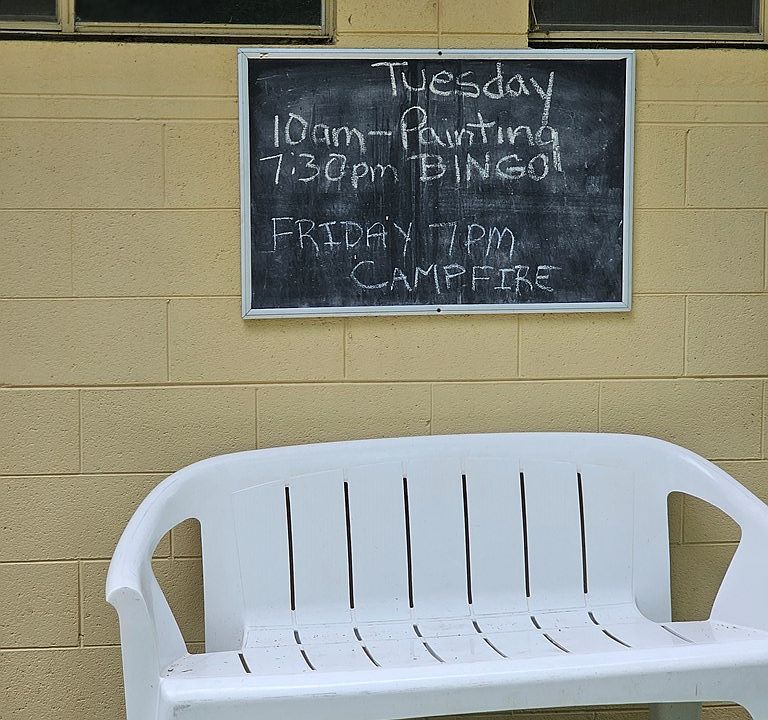 Tuesday
10am-Painting
7:30pm BINGO
FRIDAY 7PM
CAMPFIRE